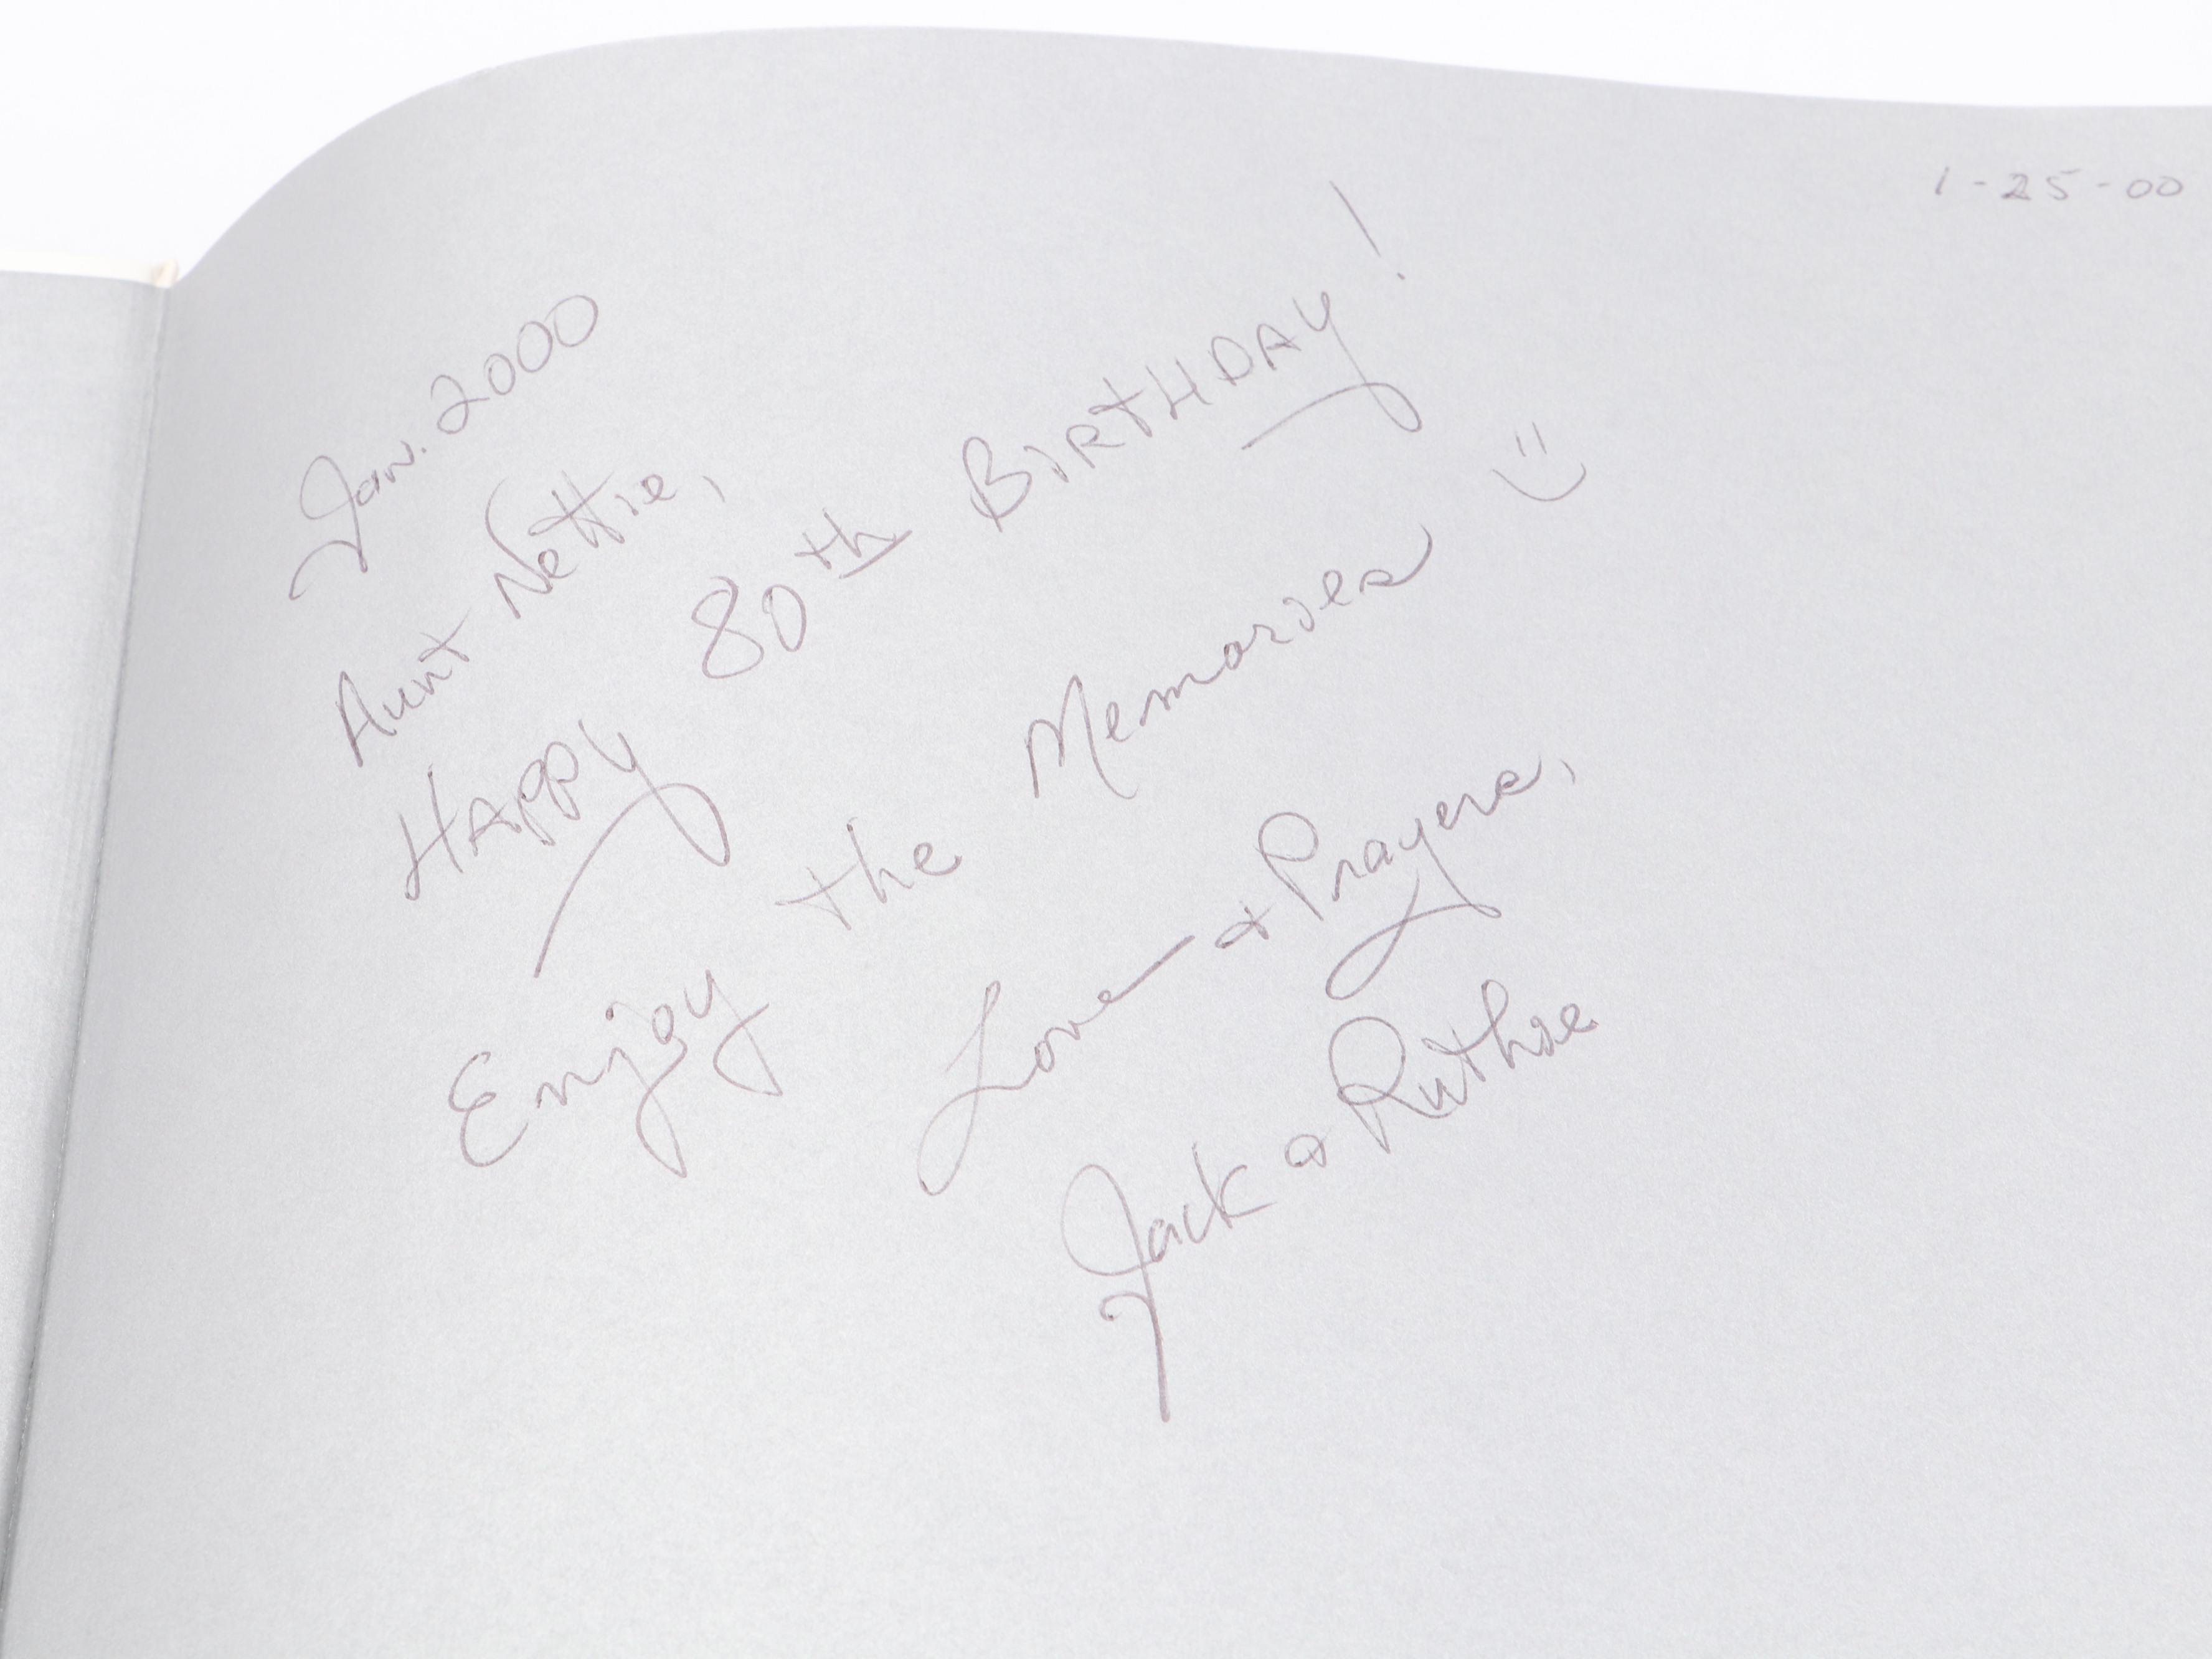 1-25-00
Jan. 2000
Aunt Nettie,
HAPPY 80th BIRTHDAY!
Enjoy the Memories :)
Love & Prayers,
Jack & Ruthie